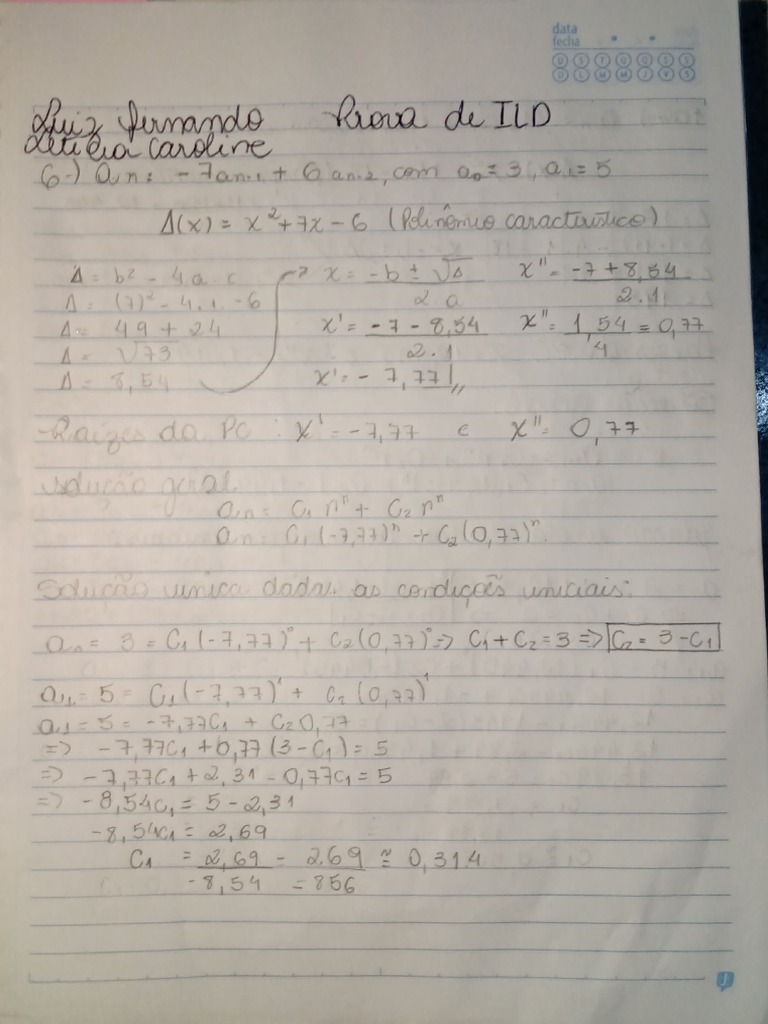 data
fecha
D S T Q Q S S
D L M M J V S
Luiz Fernando Prova de ILD
Letícia Caroline
6-) an = -7an-1 + 6an-2, com a0 = 3, a1 = 5
Δ(x) = x² + 7x - 6 (Polinômio característico)
Δ = b² - 4.a.c → x = -b ± √Δ / 2a x'' = -7 + 8,54 / 2.1
Δ = (7)² - 4.1.-6
Δ = 49 + 24 x' = -7 - 8,54 / 2.1 x'' = 1,54 / 4 = 0,77
Δ = √73
Δ = 8,54 x' = -7,77//
-Raízes do PC: x' = -7,77 e x'' = 0,77
solução geral
an = C1 rⁿ + C2 rⁿ
an = C1(-7,77)ⁿ + C2(0,77)ⁿ.
Solução unica dadas as condições iniciais:
a0 = 3 = C1(-7,77)⁰ + C2(0,77)⁰ => C1 + C2 = 3 => C2 = 3 - C1
a1 = 5 = C1(-7,77)¹ + C2(0,77)¹
a1 = 5 = -7,77C1 + C2 0,77
=> -7,77C1 + 0,77(3 - C1) = 5
=> -7,77C1 + 2,31 - 0,77C1 = 5
=> -8,54C1 = 5 - 2,31
-8,54C1 = 2,69
C1 = 2,69 / -8,54 = 2.69 / =856 ≅ 0,314